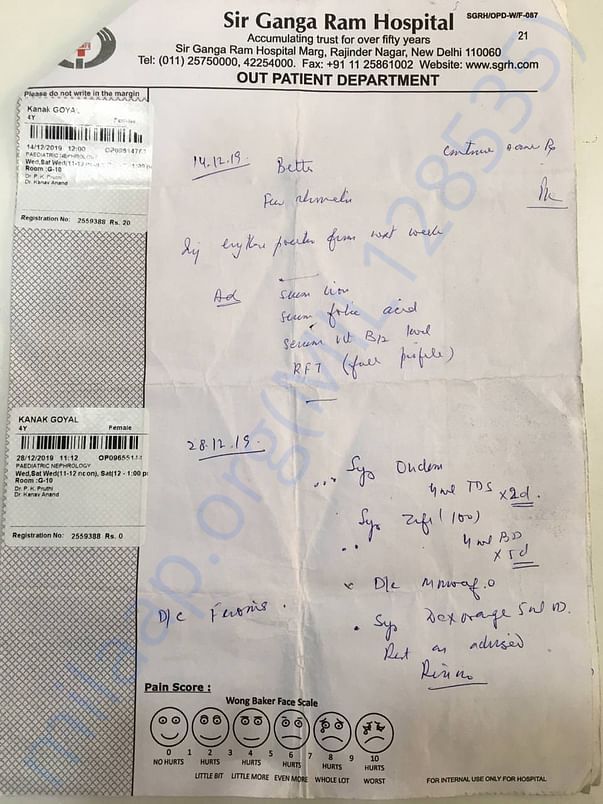 Sir Ganga Ram Hospital
SGRH/OPD-W/F-087
Accumulating trust for over fifty years
21
Sir Ganga Ram Hospital Marg, Rajinder Nagar, New Delhi 110060
Tel: (011) 25750000, 42254000. Fax: +91 11 25861002 Website: www.sgrh.com
OUT PATIENT DEPARTMENT
Please do not write in the margin
Kanak GOYAL
4Y Female
14/12/2019 12:00
PAEDIATRIC NEPHROLOGY
Room :G-10
Dr. P. K. Pruthi
Dr. Kanav Anand
Registration No: 2559388 Rs. 20
14.12.19.
continue same Rx
from next week
Ad Serum iron
Serum folic acid
Serum vit B12 level
RFT (full profile)
KANAK GOYAL
4Y Female
28/12/2019 11:12
PAEDIATRIC NEPHROLOGY
Wed,Sat Wed(11-12 noon), Sat(12 - 1:00 p
Room :G-10
Dr. P. K. Pruthi
Dr. Kanav Anand
Registration No: 2559388 Rs. 0
28.12.19.
Syp Ondem
4ml TDS x2d.
Syp Zifi (100)
4ml BD
x5d
D/c
D/c
Syp Dexorange 5ml
Rest as advised
Pain Score :
Wong Baker Face Scale
0 1 2 3 4 5 6 7 8 9 10
NO HURTS HURTS HURTS HURTS HURTS HURTS
LITTLE BIT LITTLE MORE EVEN MORE WHOLE LOT WORST
FOR INTERNAL USE ONLY FOR HOSPITAL
milaap.org(MIL 128535)